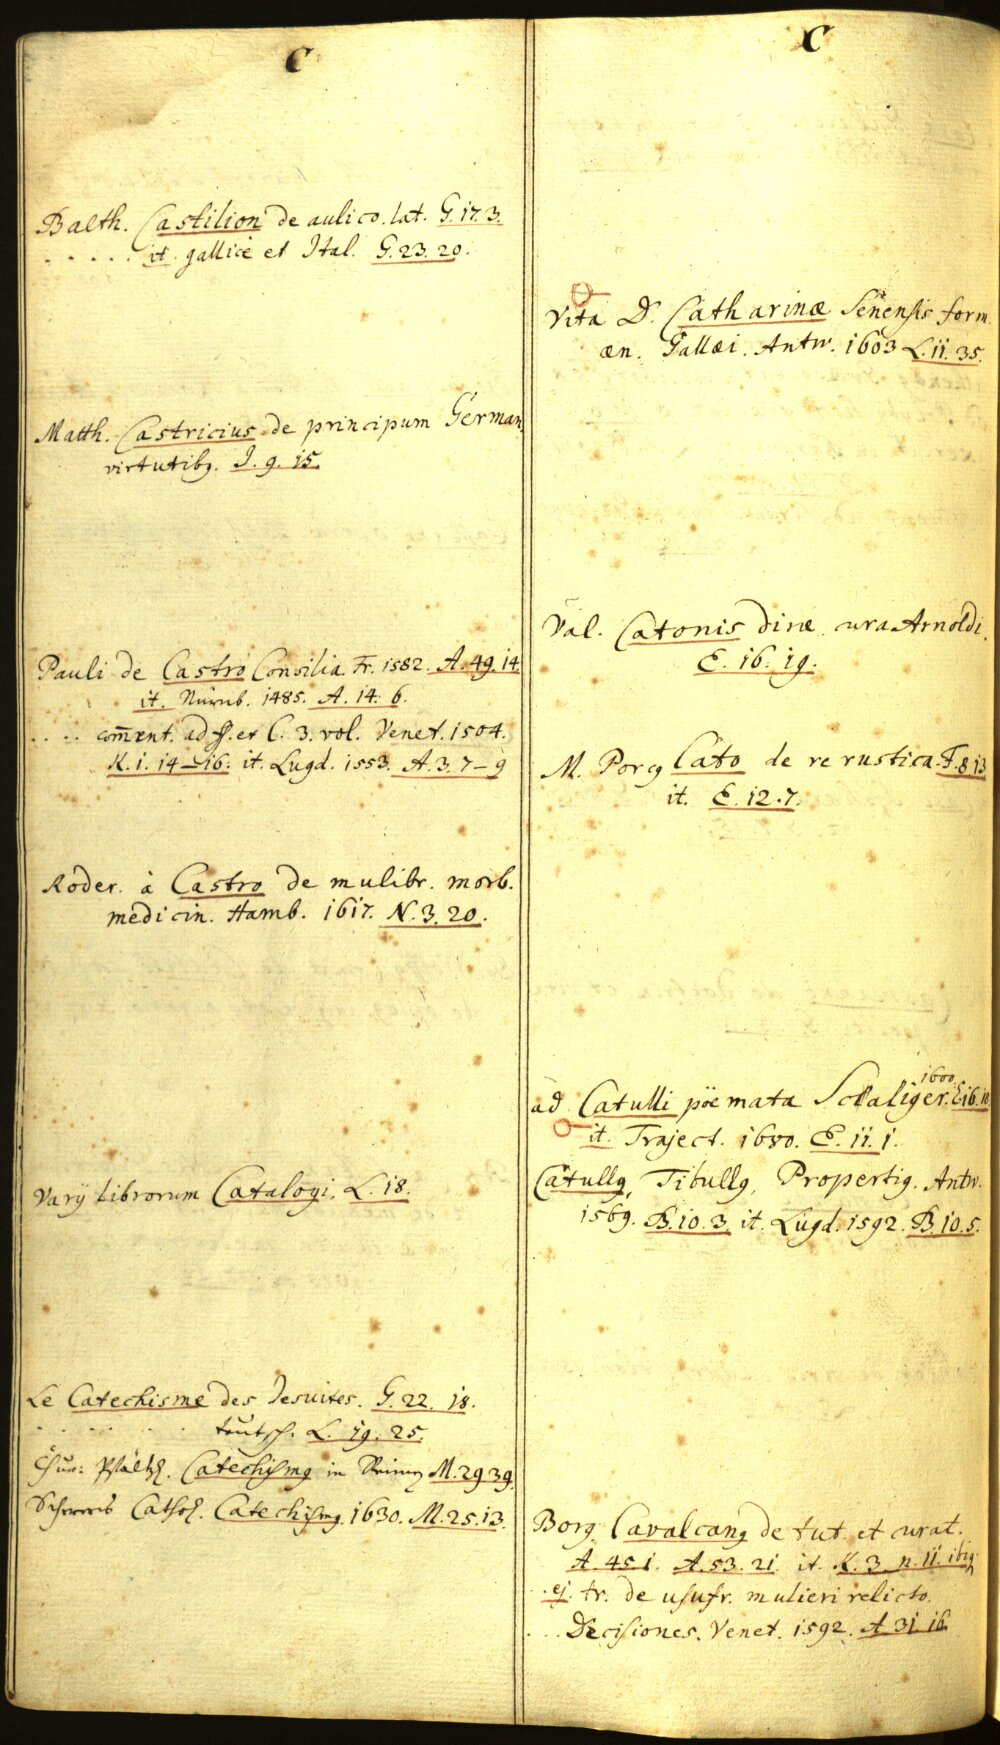 C
Balth. Castilion de aulico. lat. G. 17. 3.
. . . . . it. gallicè et Ital. G. 23. 20.
Matth. Castricius de principum German.
virtutibꝫ. J. 9. 15.
Pauli de Castro Consilia Fr. 1582. A. 49. 14.
it. Nürnb. 1485. A. 14. 6.
. . . . com̄ent. ad ff. et C. 3. vol. Venet. 1504.
K. 1. 14–16. it. Lugd. 1553. A. 3. 7–9
Roder. à Castro de mulibr. morb.
medicin. Hamb. 1617. N. 3. 20.
Varÿ librorum Catalogi. L. 18.
Le Catechisme des Jesuites. G. 22. 18.
teutsch. L. 19. 25.
Chur: Pfältz. Catechismꝰ in M. 29 39.
Cathol. Catechismꝰ. 1630. M. 25. 13.
C
Vita D. Catharinæ Senensis form.
æn. Gallæi. Antw. 1603 L. 11. 35.
Val. Catonis diræ cura Arnoldi.
E. 16. 19.
M. Porcꝰ Cato de re rustica. F. 8 13
it. E. 12. 7.
1600.
ad Catulli pöemata Scaliger. E 16. 10
it. Traject. 1680. E. 11. 1.
Catullꝰ, Tibullꝰ, Propertiꝰ. Antw.
1569. B. 10. 3. it. Lugd. 1592. B. 10. 5.
Borg. Cavalcanꝰ de tut. et curat.
A. 45 1. A. 53. 21. it. K. 3. n. 11.
. . ej. tr. de usufr. mulieri relicto.
. . . Decisiones. Venet. 1592. A 31. 16.